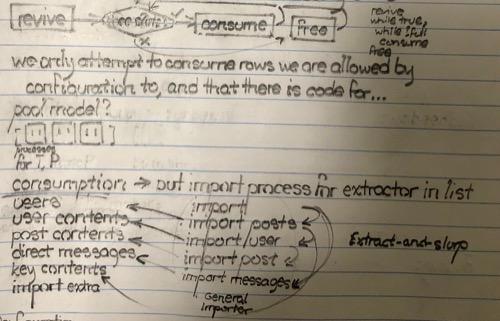 revive
consume
free
revive
while true,
while !full
consume
free
we only attempt to consume rows we are allowed by
configuration to, and that there is code for...
pool model?
processes
for T, P
consumption → put import process for extractor in list
users
user contents
post contents
direct messages
key contents
import extra
import
import posts
import user
import post
import messages
general
importer
Extract-and-slurp